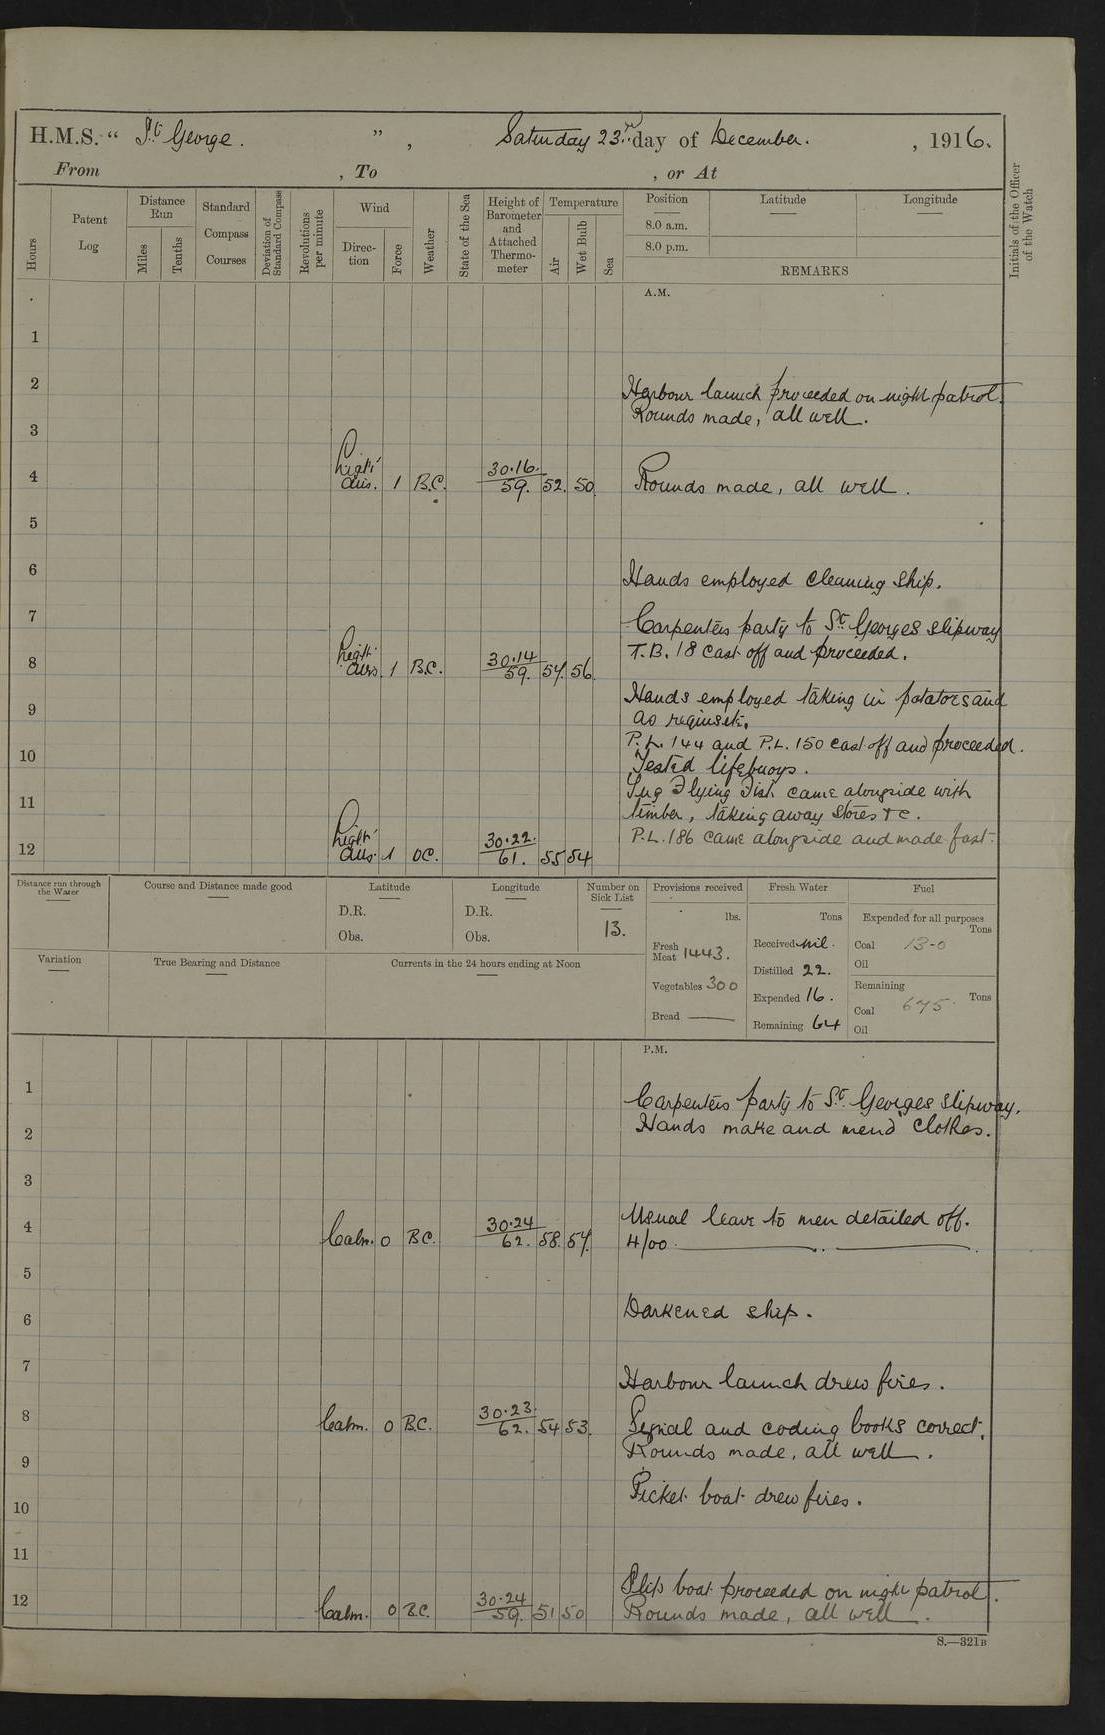 H.M.S. “ St George. ”, Saturday 23rd day of December. , 1916.
From , To , or At
Hours
Patent Log
Distance Run
Miles
Tenths
Standard Compass Courses
Deviation of Standard Compass
Revolutions per minute
Wind
Direction
Force
Weather
State of the Sea
Height of Barometer and Attached Thermometer
Temperature
Air
Wet Bulb
Sea
Position
8.0 a.m.
8.0 p.m.
Latitude
Longitude
REMARKS
Initials of the Officer of the Watch
A.M.
1
2
Harbour launch proceeded on night patrol.
Rounds made, all well.
3
4 Light airs. 1 B.C. 30.16. 59. 52. 50. Rounds made, all well.
5
6 Hands employed cleaning ship.
7 Carpenters party to St. Georges slipway
8 Light airs. 1 B.C. 30.14 59. 57. 56. T.B. 18 cast off and proceeded.
9 Hands employed taking in potatoes and
as requisite.
P.L. 144 and P.L. 150 cast off and proceeded.
10 Tested lifebuoys.
11 Tug Flying Fish came alongside with
timber, taking away stores &c.
12 Light airs. 1 OC. 30.22. 61. 55 54 P.L. 186 came alongside and made fast.
Distance run through the Water
Course and Distance made good
Latitude
D.R.
Obs.
Longitude
D.R.
Obs.
Number on Sick List
13.
Provisions received
lbs.
Fresh Meat 1443.
Vegetables 300
Bread ———
Fresh Water
Tons
Received nil.
Distilled 22.
Expended 16.
Remaining 64
Fuel
Expended for all purposes
Tons
Coal 13-0
Oil
Remaining
Tons
Coal 675
Oil
Variation
True Bearing and Distance
Currents in the 24 hours ending at Noon
P.M.
1 Carpenters party to St. Georges slipway.
2 Hands make and mend clothes.
3
4 Calm. 0 B.C. 30.24 62. 58. 57. Usual leave to men detailed off.
4/00
5
6 Darkened ship.
7 Harbour launch drew fires.
8 Calm. 0 B.C. 30.23. 62. 54 53. Signal and coding books correct.
9 Rounds made, all well.
10 Picket boat drew fires.
11
12 Calm. 0 B.C. 30.24 59. 51 50 Slip boat proceeded on night patrol.
Rounds made, all well.
S.—321B